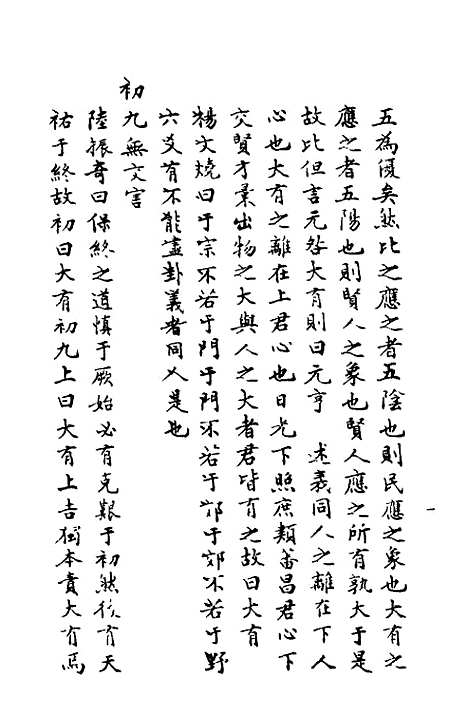 五為優矣然比之應之者五陰也則民應之象也大有之
應之者五陽也則賢人之象也賢人應之所有孰大于是
故比但言元咎大有則曰元亨　述義同人之離在下人
心也大有之離在上君心也日光下照庶類蕃昌君心下
交賢才彙出物之大與人之大者君皆有之故曰大有
楊文燒曰于宗不若于門于門不若于郊于郊不若于野
六爻有不能盡卦義者同人是也
初九無交害
陸振奇曰保終之道慎于厥始必有克艱于初然後有天
祐于終故初曰大有初九上曰大有上吉獨本責大有焉